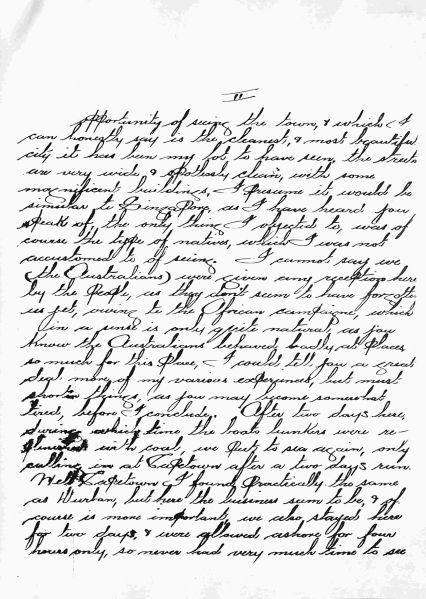 II
opportunity of seeing the town, & which I
can honestly say is the cleanest, & most beautiful
city it has been my lot to have seen, the streets
are very wide, & spotlessly clean, with some
magnificent buildings, I presume it would be
similar to Singapore, as I have heard you
speak of, the only thing I objected to, was of
course the type of natives, which I was not
accustomed to seeing. I cannot say we
(the Australians) were given any reception here
by the people, as they don't seem to have forgotten
us yet, owing to the African campaigne, which
in a sense is only quite natural as you
know the Australians behaved badly at places
so much for this place, I could tell you a great
deal more of my various experiences, but must
shorten things, as you may become somewhat
tired, before I conclude. After two days here,
during which time the boats bunkers were re-
plenished with coal, we put to sea again, only
calling in at Capetown after a two days run.
Well Capetown I found practically the same
as Durban, but here the business seem to be, & of
course is more important, we also stayed here
for two days, & were allowed ashore for four
hours only, so never had very much time to see